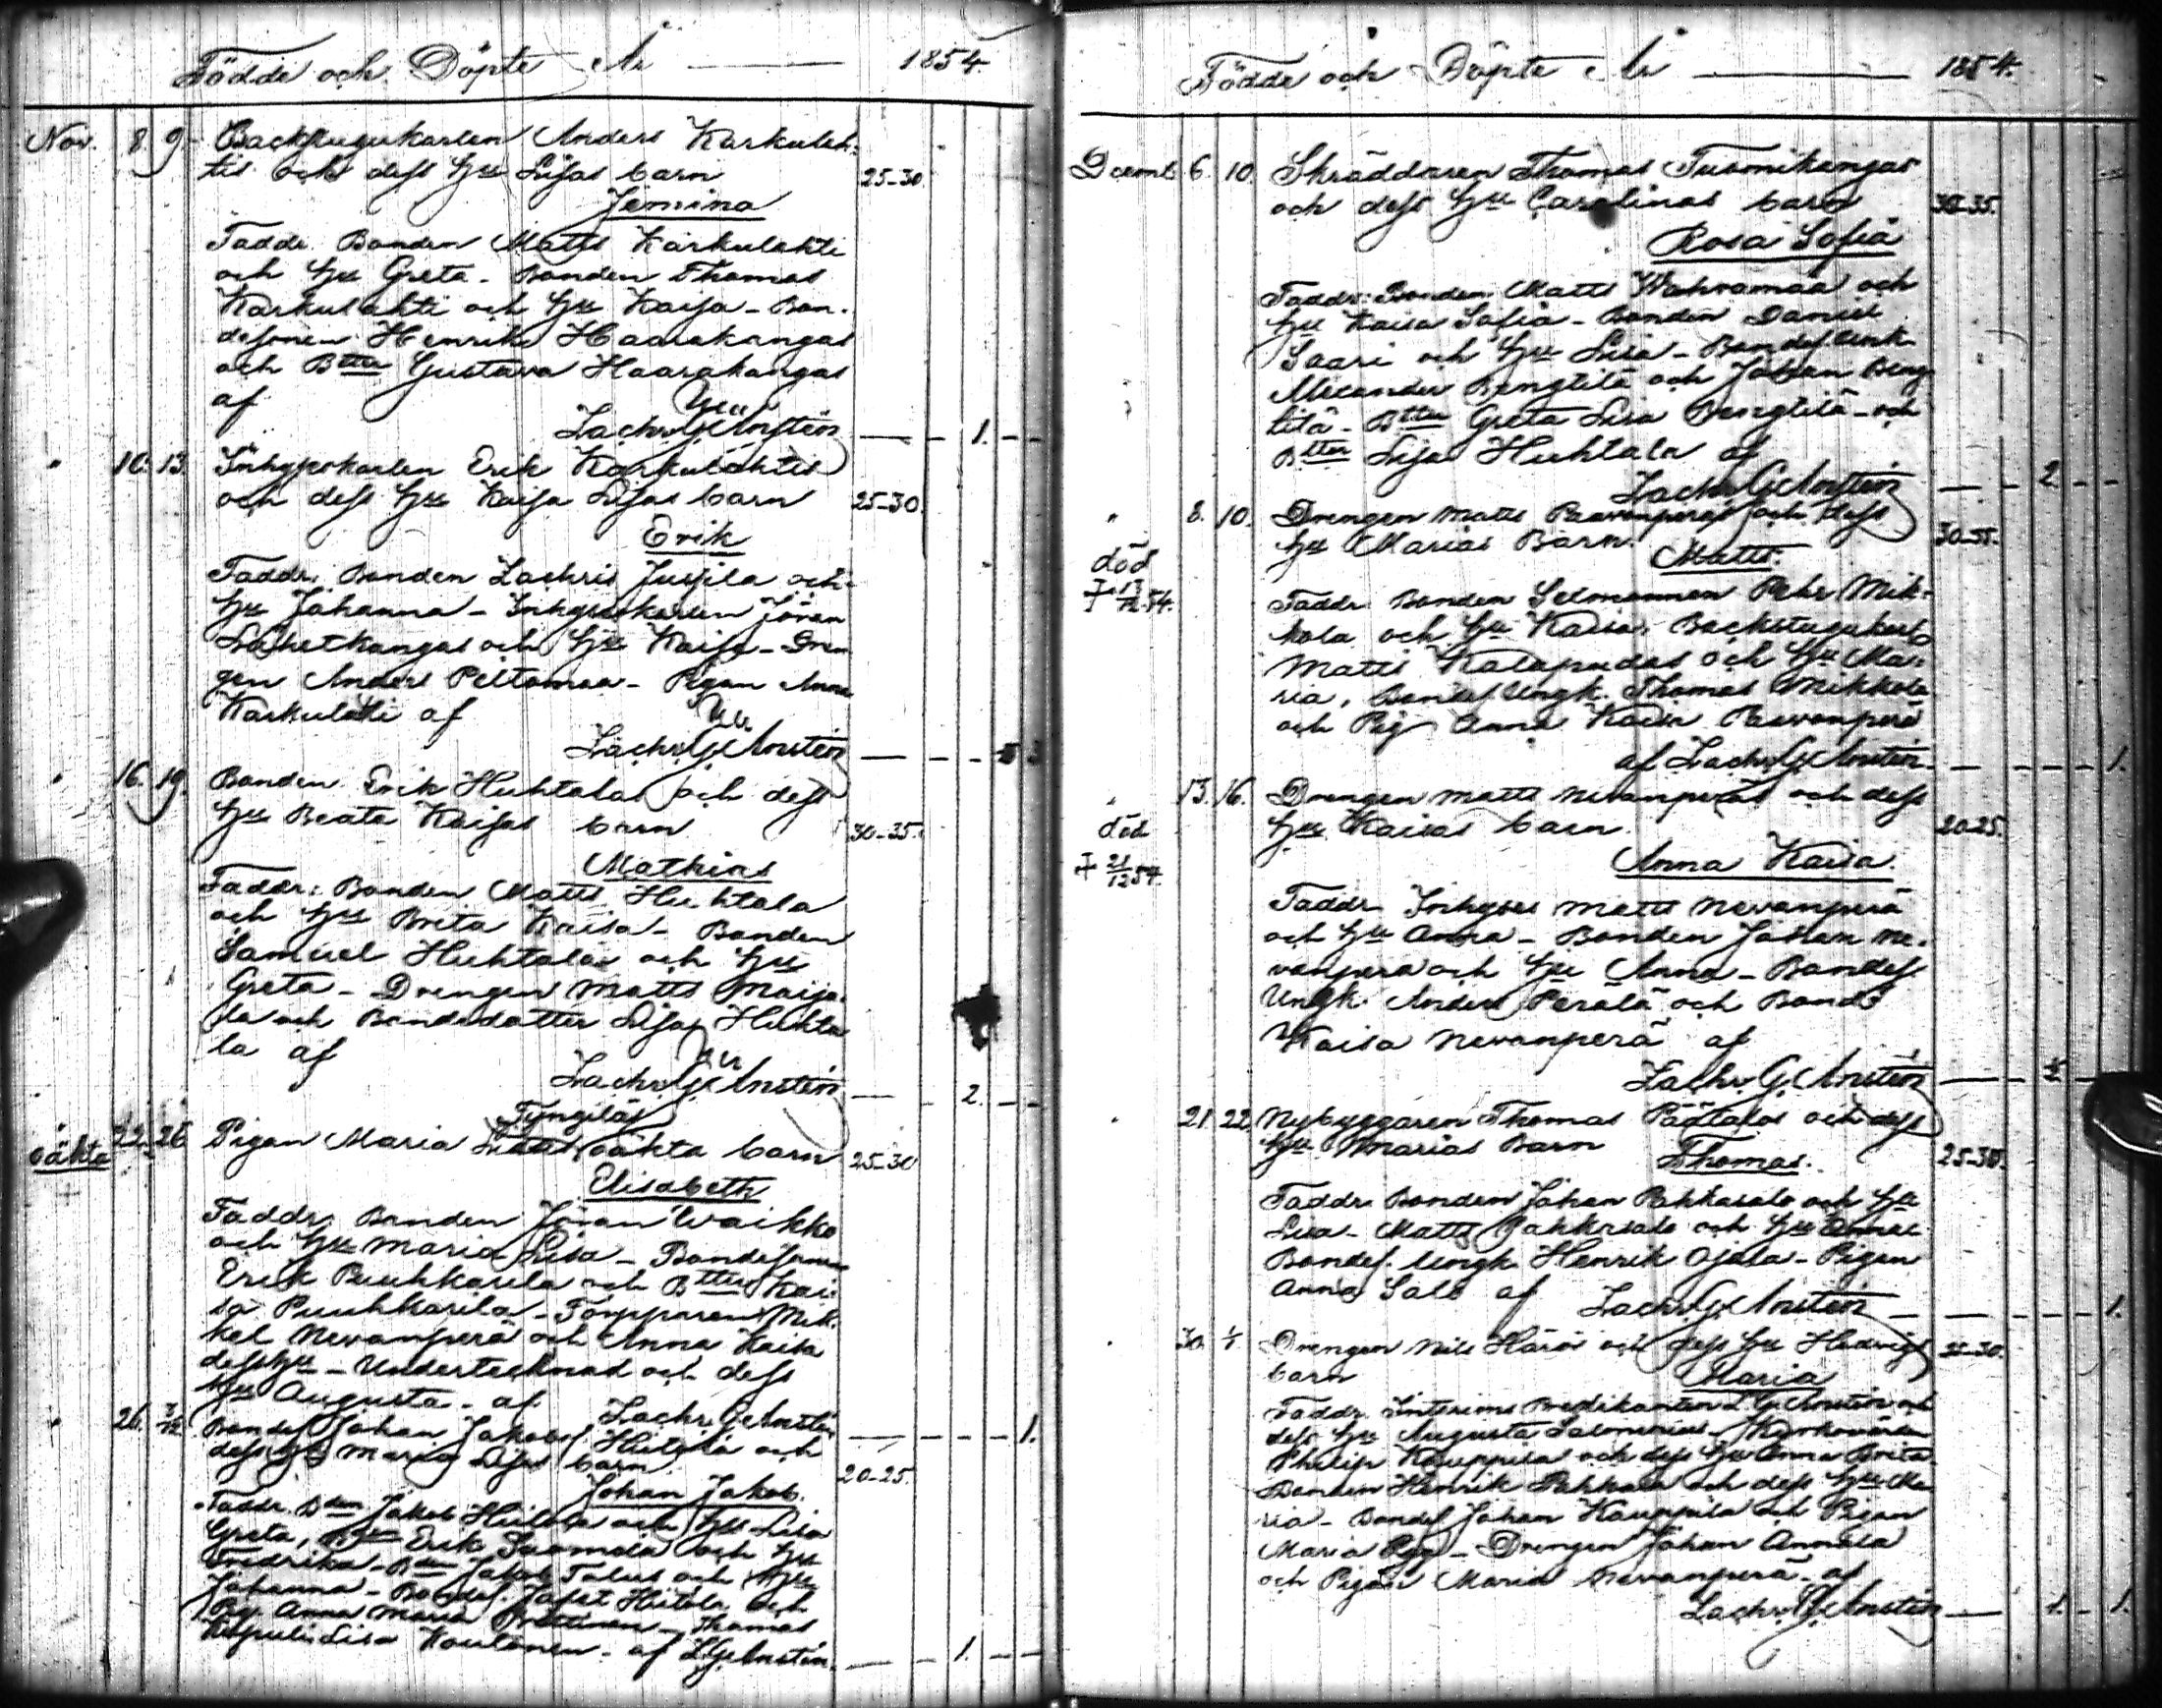 Födde och Döpte År 1854.
Nov. 8. 9. Backstugukarlen Anders Karkulah-
tis och dess Hu Lisas barn 25-30
Jemina
Faddr. Bonden Matts Karkulahti
och Hu Greta - Bonden Thomas
Karkulahti och Hu Kajsa - Bon-
desonen Henrik Haarakangas
och Btter Gustava Haarakangas
af
Zachr. G. Anstén 1.
" 10. 13. Inhyseskarlen Erik Karkulahtis
och dess Hu Kajsa Lisas barn 25-30
Erik
Faddr. Bonden Zachris Jussila och
Hu Johanna - Inhyseskarlen Jöran
Lähetkangas och Hu Kajsa - Dren-
gen Anders Peltomaa - Pigan Anna
Karkulahti af
Zachr. G. Anstén
" 16. 19. Bonden Erik Huhtalas och dess
Hu Beata Kaisas barn 30-35.
Mathias
Faddr: Bonden Matts Huhtala
och Hu Brita Kaisa - Bonden
Samuel Huhtala och Hu
Greta - Drengen Matts Maija-
la och Bondedotter Lisa Huhta
la af
Zachr. G. Anstén 2.
Tyngiläs
" 22. 26. Pigan Maria oäkta barn 25-30
oäkta
Elisabeth
Faddr. Bonden Jöran Waikko
och Hu Maria Lisa - Bondesonen
Erik Puuhkarila och Btter Kai-
sa Puuhkarila - Torpparen Mik-
kel Nevanperä och Anna Kaisa
dess Hu - Undertecknad och dess
Hu Augusta - af Zachr. G. Anstén 1.
" 26. 3/12 Bondes. Johan Jakobs Hietala och
dess Hu Maria Lisas barn 20-25.
Johan Jakob.
Faddr. Bden Jakob Hietala och Hu Lisa
Greta, Erik och Hu
Fredrika - Bden Jakob och Hu
Johanna - Bondes. Jafet Hietala och
Pig. Anna Maria - Thomas
Lisa Koutonen - af Z. G. Anstén. 1.
Födde och Döpte År 1854.
Decemb. 6. 10. Skräddaren Thomas Tuomikangas
och dess Hu Carolinas barn 30-35.
Rosa Sofia
Faddr: Bonden Matts och
Hu Kaisa Sofia - Bonden Daniel
Saari och Hu Lisa - Bondes Ungk.
Bengtilä och Johan Beng
tilä - Btter Greta Lisa Bengtilä - och
Btter Lisa Huhtala af
Zachr. G. Anstén 2
" 8. 10. Drengen Matts Paavonperäs och dess
Hu Marias Barn. 30-35.
död
Matts.
13/12 54.
Faddr. Bonden Pehr Mik-
kola och Hu Kaisa, Backstugukarl
Matts Kalapudas och Hu Ma-
ria, Bondes Ungk. Thomas Mikkola
och Pig Anna Kaisa Paavonperä
af Zachr. G. Anstén. 1.
" 13. 16. Drengen Matts Nevanperäs och dess
Hu Kaisas barn. 20-25.
död
Anna Kaisa.
21/12 54.
Faddr. Inhyses Matts Nevanperä
och Hu Anna - Bonden Johan Ne-
vanperä och Hu Anna - Bondes
Ungk. Anders Perälä och Bond
Kaisa Nevanperä af
Zachr. G. Anstén
" 21. 22. Nybyggaren Thomas Päätalos och dess
Hu Marias Barn 25-30.
Thomas.
Faddr. Bonden Johan Pakkasalo och Hu
Lisa - Matts Pakkasalo och Hu
Bondes. Ungk Henrik Ojala - Pigan
Anna Salo af Zachr. G. Anstén 1.
" 30. 1/1 Drengen Nils och dess Hu Hedvigs 25-30.
barn Maria
Faddr. Interims Predikanten Z. G. Anstén och
dess Hu Augusta - Kyrkovärden
Philip Kauppila och dess Hu Anna Brita
Bonden Henrik Pakkala och dess Hu Ma
ria - Bondes Johan Kauppila och Pigan
Maria - Drengen Johan Annala
och Pigan Maria Nevanperä - af
Zachr. G. Anstén 1. 1.